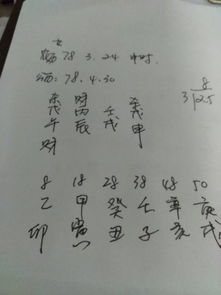 女
78 3.24 申时.
78.4.30
8
3 25
杀 财 杀
戊 丙 壬 戊
午 辰 戌 申
财
8 18 28 38 48 50
乙 甲 癸 壬 辛 庚
卯 寅 丑 子 亥 戌